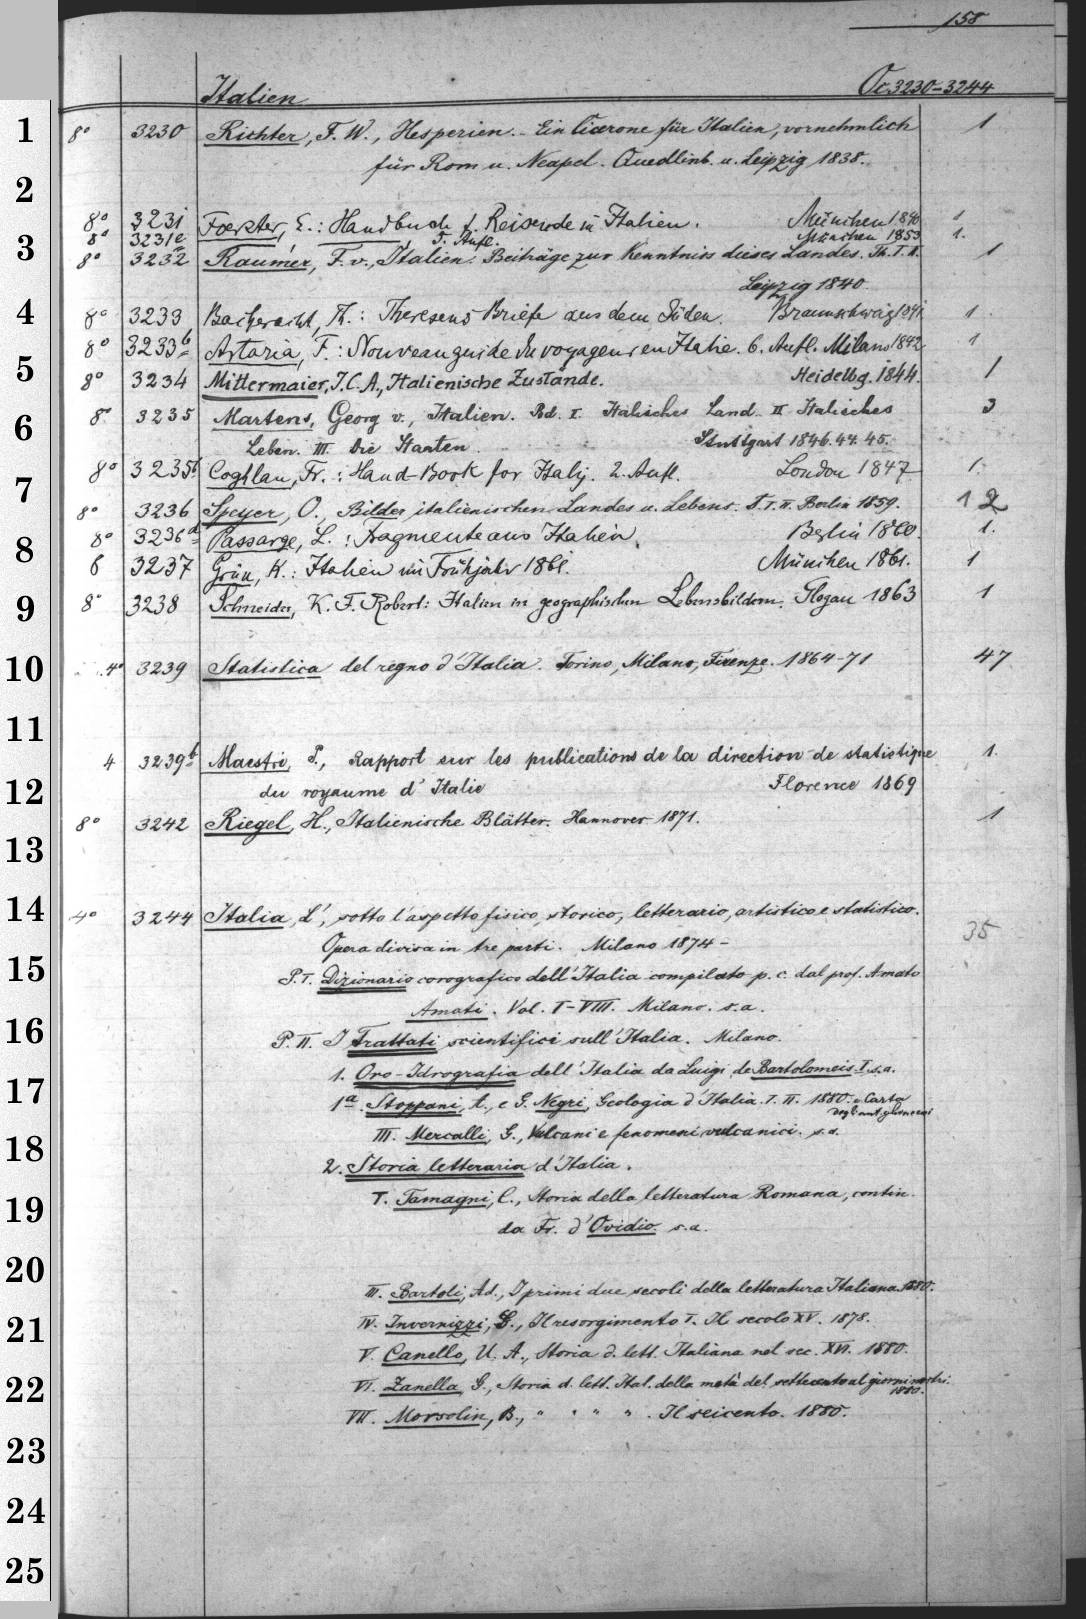 158
Italien Oc 3230-3244
1
8° 3230 Richter, F. W., Hesperien. - Ein Cicerone für Italien, vornehmlich 1
für Rom u. Neapel. Quedlinb. u. Leipzig 1838.
2
8° 3231 Foerster, E.: Handbuch f. Reisende in Italien. München 1840 1.
8° 3231e 5. Aufl. München 1853 1.
3
8° 3232 Raumer, F. v., Italien. Beiträge zur Kenntniss dieses Landes. Th. I. II. 1
Leipzig 1840.
4
8° 3233 Bacheracht, Th.: Theresens Briefe aus dem Süden. Braunschweig 1841 1.
8° 3233b Artaria, F.: Nouveau guide du voyageur en Italie. 6. Aufl. Milano 1842 1
5
8° 3234 Mittermaier, J. C. A., Italienische Zustände. Heidelbg. 1844. 1
8° 3235 Martens, Georg v., Italien. Bd. I. Italisches Land. II Italisches 3
6
Leben. III. Die Staaten. Stuttgart 1846. 44. 45.
8° 3235b Coghlan, Fr.: Hand-Book for Italy. 2. Aufl. London 1847 1.
7
8° 3236 Speyer, O., Bilder italienischen Landes u. Lebens. T. I. II. Berlin 1859. 1 2
8° 3236a Passarge, L.: Fragmente aus Italien. Berlin 1860. 1.
8
6 3237 Grün, K.: Italien im Frühjahr 1861. München 1861. 1
8° 3238 Schneider, K. F. Robert: Italien in geographischen Lebensbildern. Glogau 1863 1
9
10
4° 3239 Statistica del regno d'Italia. Torino, Milano, Firenze. 1864-71 47
11
4 3239b Maestri, P., Rapport sur les publications de la direction de statistique 1.
12
du royaume d'Italie Florence 1869
8° 3242 Riegel, H., Italienische Blätter. Hannover 1871. 1
13
14
4° 3244 Italia, L', sotto l'aspetto fisico, storico, letterario, artistico e statistico. 35
Opera divisa in tre parti. Milano 1874-
15
P. I. Dizionario corografico dell'Italia compilato p. c. dal prof. Amato
Amati. Vol. I-VIII. Milano. s. a.
16
P. II. I Trattati scientifici sull'Italia. Milano.
1. Oro-Idrografia dell'Italia da Luigi de Bartolomeis I. s. a.
17
1a. Stoppani, A., e G. Negri, Geologia d'Italia. I. II. 1880. e Carta
degl'ant.
18
III. Mercalli, G., Vulcani e fenomeni vulcanici. s. a.
2. Storia letteraria d'Italia.
19
I. Tamagni, C., Storia della letteratura Romana, contin.
da Fr. d'Ovidio. s. a.
20
III. Bartoli, Ad., I primi due secoli della letteratura Italiana. 1880.
21
IV. Invernizzi, G., Il resorgimento I. Il secolo XV. 1878.
V. Canello, U. A., Storia d. lett. Italiana nel sec. XVI. 1880.
22
VI. Zanella, G., Storia d. lett. Ital. della metà del settecento al giorni nostri.
1880.
VII. Morsolin, B., " " " " . Il seicento. 1880.
23
24
25